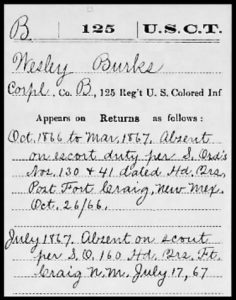 B. 125 U.S.C.T.
Wesley Burks
Corpl, Co. B, 125 Reg't U. S. Colored Inf
Appears on Returns as follows:
Oct. 1866 to Mar. 1867. Absent
on escort duty per S. Ord's
Nos. 130 & 41 dated Hd. Qrs.
Post Fort Craig, New Mex.
Oct. 26/66.
July 1867. Absent on scout
per S.O. 160 Hd. Qrs. Ft.
Craig N.M. July 17, 67